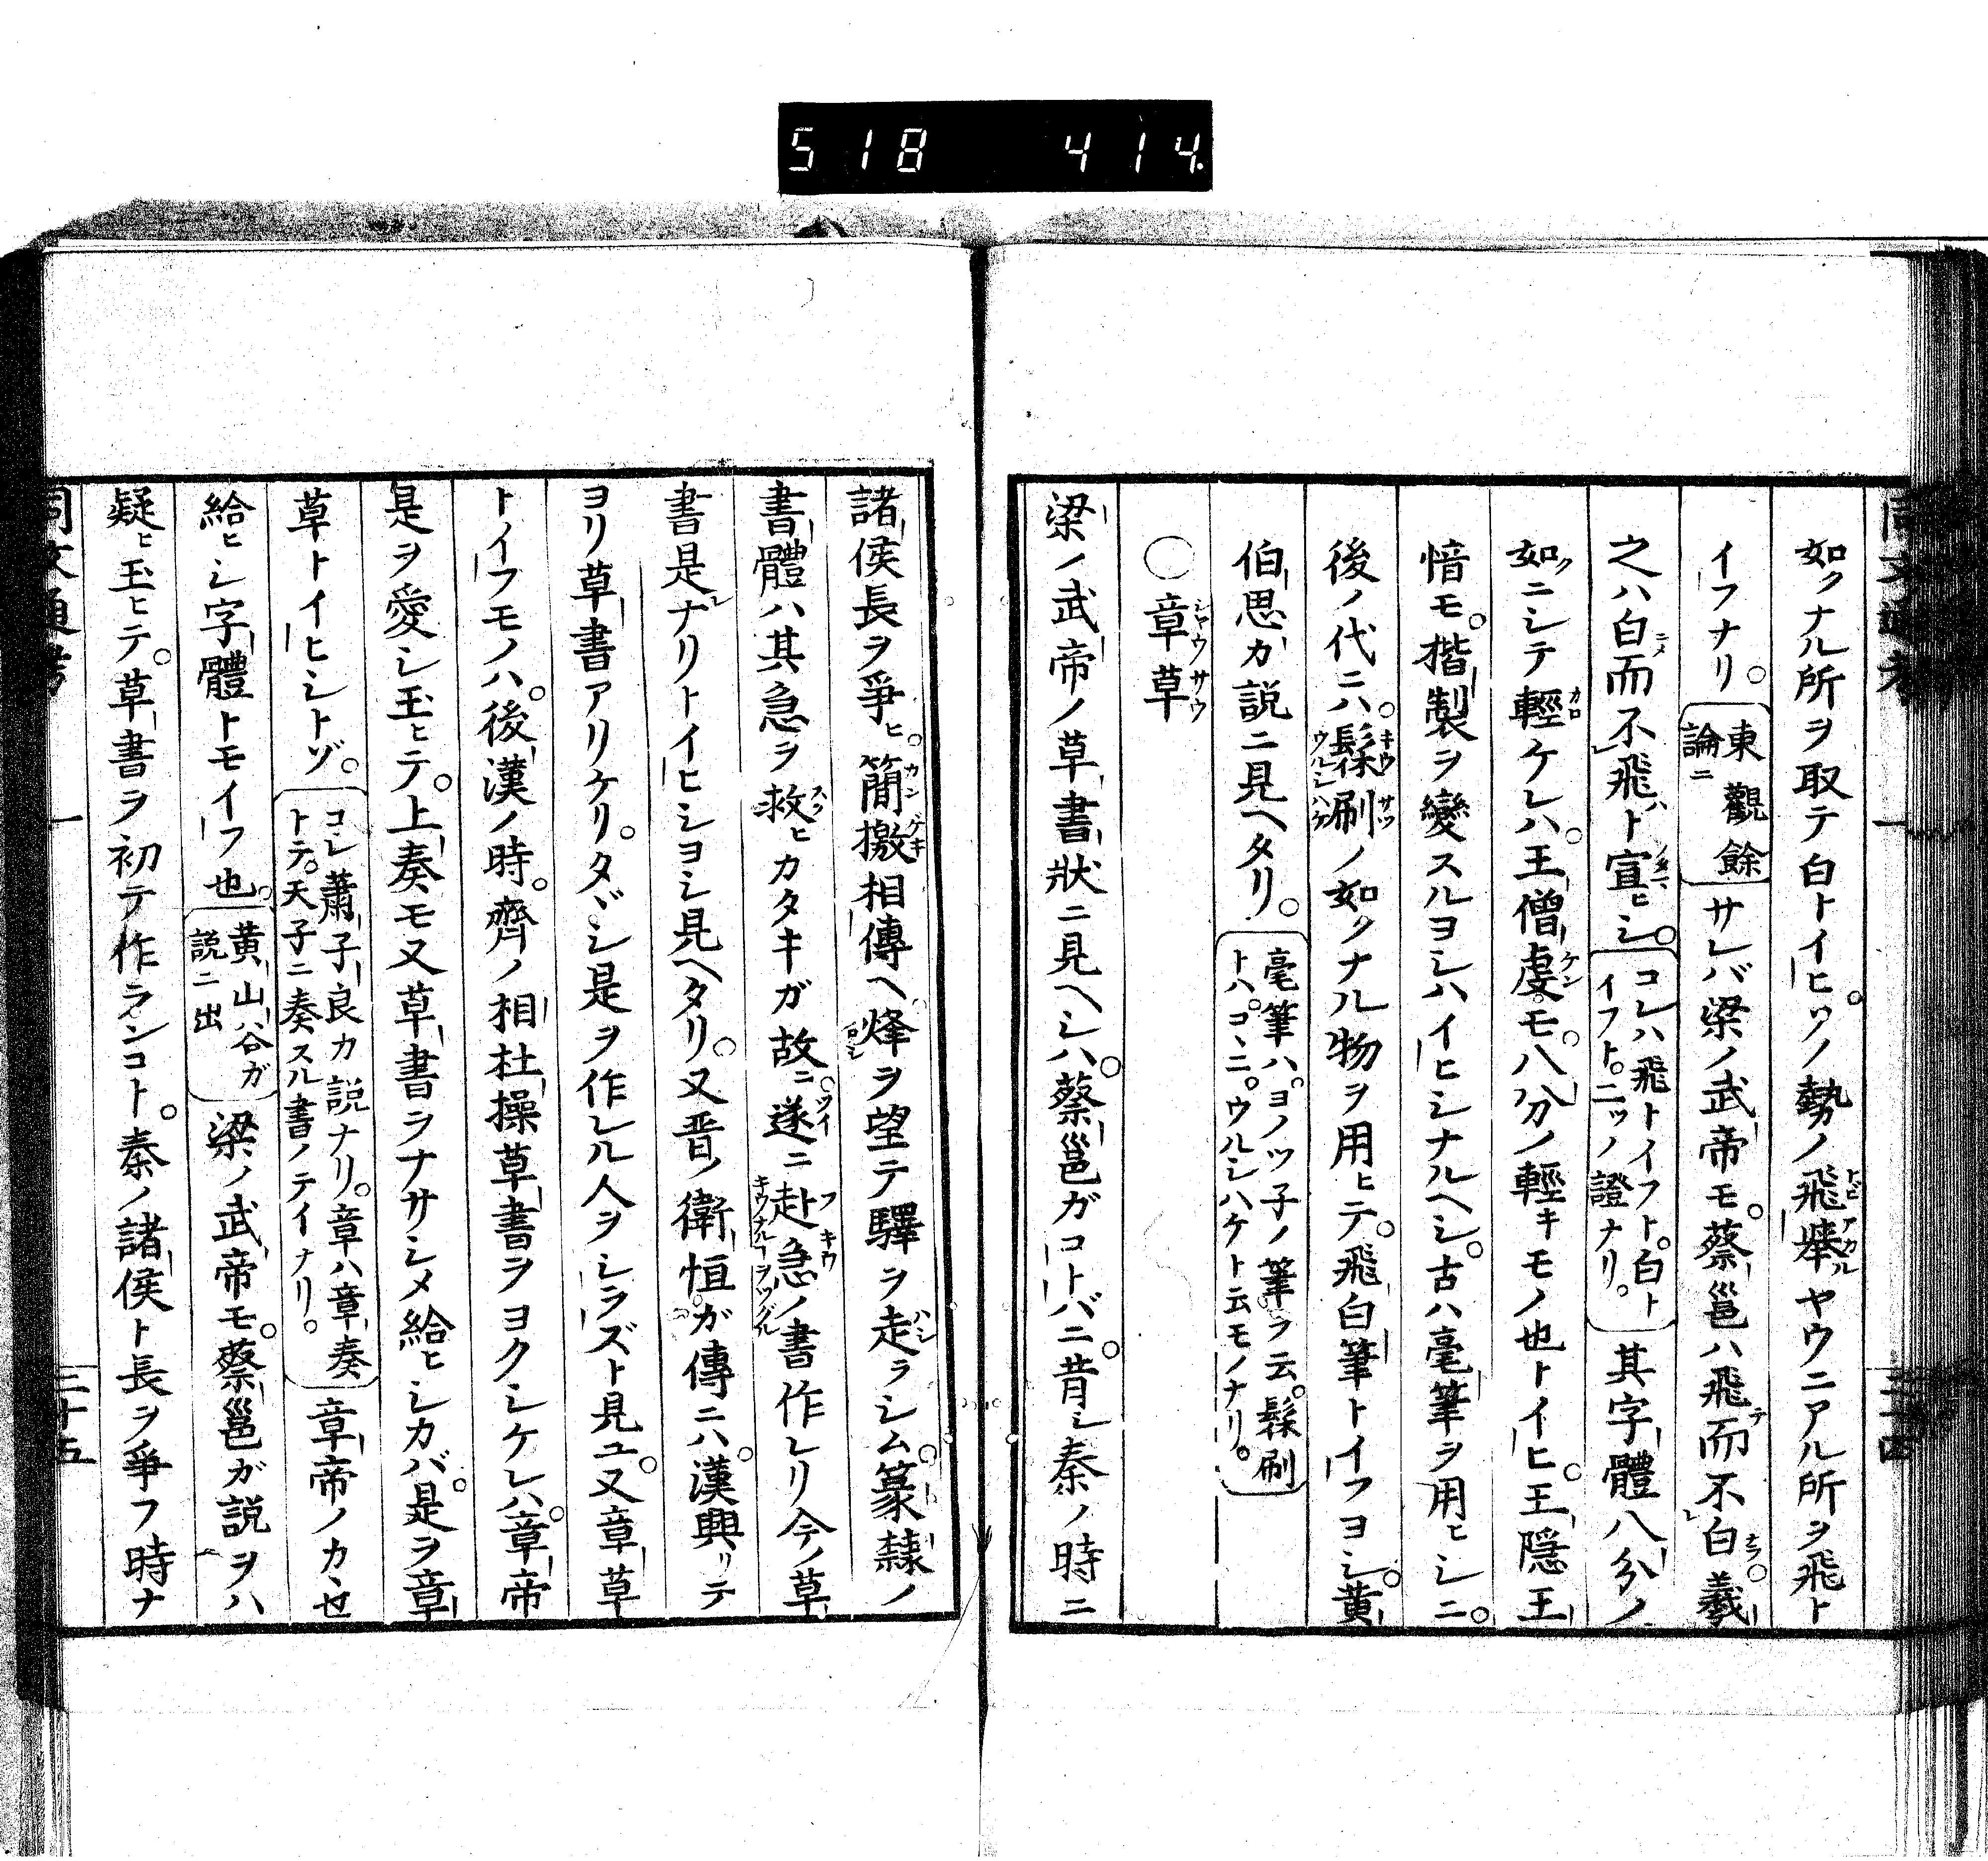 518 414
如クナル所ヲ取テ白トイヒソノ勢ノ飛擧ヤウニアル所ヲ飛ト
イフナリ。東觀餘論ニサレバ梁ノ武帝モ。蔡邕ハ飛而不白羲
之ハ白而不飛ト宣ヒシ。コレハ飛トイフト。白トイフト。二ツノ證ナリ。其字體八分ノ
如クニシテ輕ケレハ。王僧虔モ。八分ノ輕キモノ也トイヒ。王隱王
愔モ。楷製ヲ變スルヨシハイヒシナルヘシ。古ハ毫筆ヲ用ヒシニ。
後ノ代ニハ。髹刷ノ如クナル物ヲ用ヒテ。飛白筆トイフヨシ。黄
伯思カ説ニ見ヘタリ。毫筆ハ。ヨノツ子ノ筆ヲ云。髹刷トハ。コヽニ。ウルシハケト云モノナリ。
○章草
梁ノ武帝ノ草書狀ニ見ヘシハ。蔡邕ガコトバニ。昔シ秦ノ時ニ
諸侯長ヲ爭ヒ。簡檄相傳ヘ烽ヲ望テ驛ヲ走ラシム。篆隷ノ
書體ハ其急ヲ救ヒカタキガ故ニ。遂ニ赴急ノ書作レリ今ノ草
書是ナリトイヒシヨシ見ヘタリ。又晋ノ衛恒ガ傳ニハ。漢興リテ
ヨリ草書アリケリ。タヾシ是ヲ作レル人ヲシラズト見ユ。又章草
トイフモノハ。後漢ノ時。齊ノ相杜操草書ヲヨクシケレハ。章帝
是ヲ愛シ玉ヒテ。上奏モ又草書ヲナサシメ給ヒシカバ。是ヲ章
草トイヒシトゾ。コレ蕭子良カ説ナリ。章ハ章奏トテ。天子ニ奏スル書ノテイナリ。章帝ノカヽセ
給ヒシ字體トモイフ也。黄山谷ガ説ニ出梁ノ武帝モ。蔡邕ガ説ヲハ
疑ヒ玉ヒテ。草書ヲ初テ作ランコト。秦ノ諸侯ト長ヲ爭フ時ナ
同文通考 一 三十五